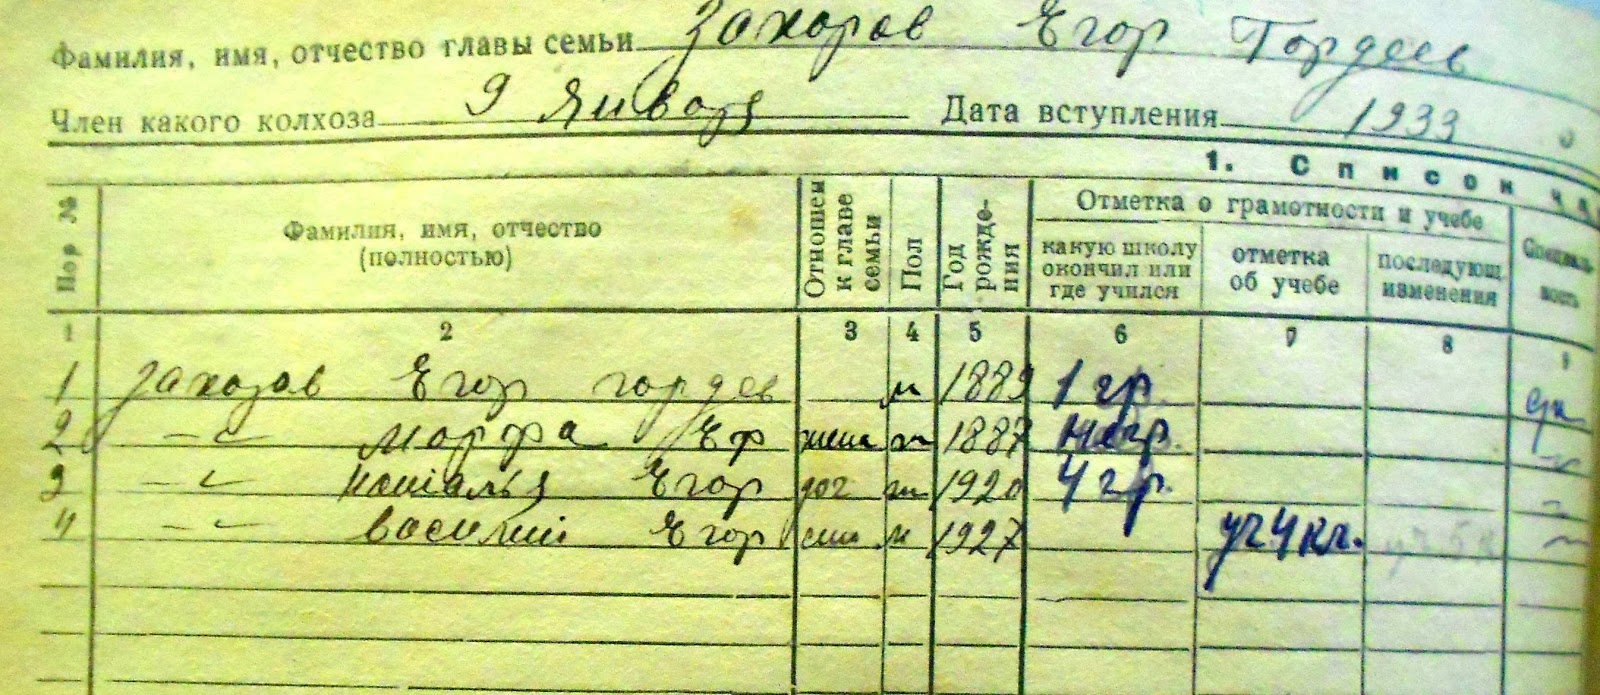 Фамилия, имя, отчество главы семьи Захоров Егор Гордеев
Член какого колхоза 9 Января Дата вступления 1933
1. Список
Пор №
Фамилия, имя, отчество
(полностью)
Отношен
к главе
семьи
Пол
Год
рожде-
ния
Отметка о грамотности и учебе
какую школу
окончил или
где учился
отметка
об учебе
последующ.
изменения
Специаль-
ность
2 3 4 5 6 7 8 9
1 Захоров Егор Гордев м 1889 1 гр.
2 –"– Марфа Еф жена ж 1887 негр.
3 –"– Наталья Егор доч ж 1920 4 гр.
4 –"– Василий Егор сын м 1927 уч 4 кл. уч 5 к